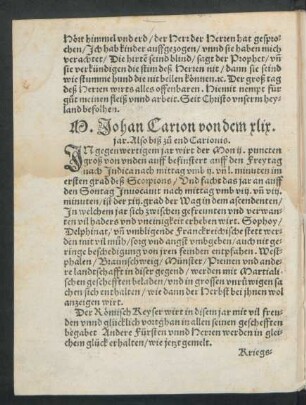 Hört himmel vnd erd / der Herr der Herren hat gespro-
chen / Ich hab kinder auffgezogen / vnnd sie haben mich
verachtet / Die hirte seind blind / sagt der Prophet / vñ
sie verkündigen die stim deß Herren nit / dann sie seind
wie stumme hund die nit bellen können. ꝛc. Der groß tag
deß Herren wirts alles offenbaren. Hiemit nempt für
gůt meinen fleiß vnnd arbeit. Seit Christo vnserm hey-
land befolhen.
M. Johan Carion von dem xlix.
jar. Also biß zů end Carionis.
IN gegenwertigem jar wirt der Mon ij. puncten
groß von vnden auff befinstert auff den Freytag
nach Judica nach mittag vmb ij. vñ l. minuten im
ersten grad deß Scorpions / Vnd sachs das jar an auff
den Sontag Inuocauit nach mittag vmb viij. vñ vij.
minuten / ist der xiij. grad der Wag in dem ascendenten /
In welchem jar sich zwischen gefreunten vnd verwan-
ten vil haders vnd vneinigkeit erheben wirt. Sophoy /
Delphinat / vñ vmbligende Franckreichische stett werden
mit vil müh / sorg vnd angst vmbgeben / auch nit ge-
ringe beschedigung von jren feinden empfahen. West-
phalen / Braunschweig / Münster / Peinen vnd ande-
re landtschafft in diser gegend / werden mit Martiali-
schen geschefften beladen / vnd in grossen vnrüwigen sa
chen sich enthalten / wie dann der Herbst bei jhnen wol
anzeigen wirt.
Der Römisch Keyser wirt in disem jar mit vil freu-
den vnnd glücklich vortgang in allen seinen geschefften
begabet Andere Fürsten vnd Herren werden in glei-
chem glück erhalten / wie jetz gemelt.
Kriegs-